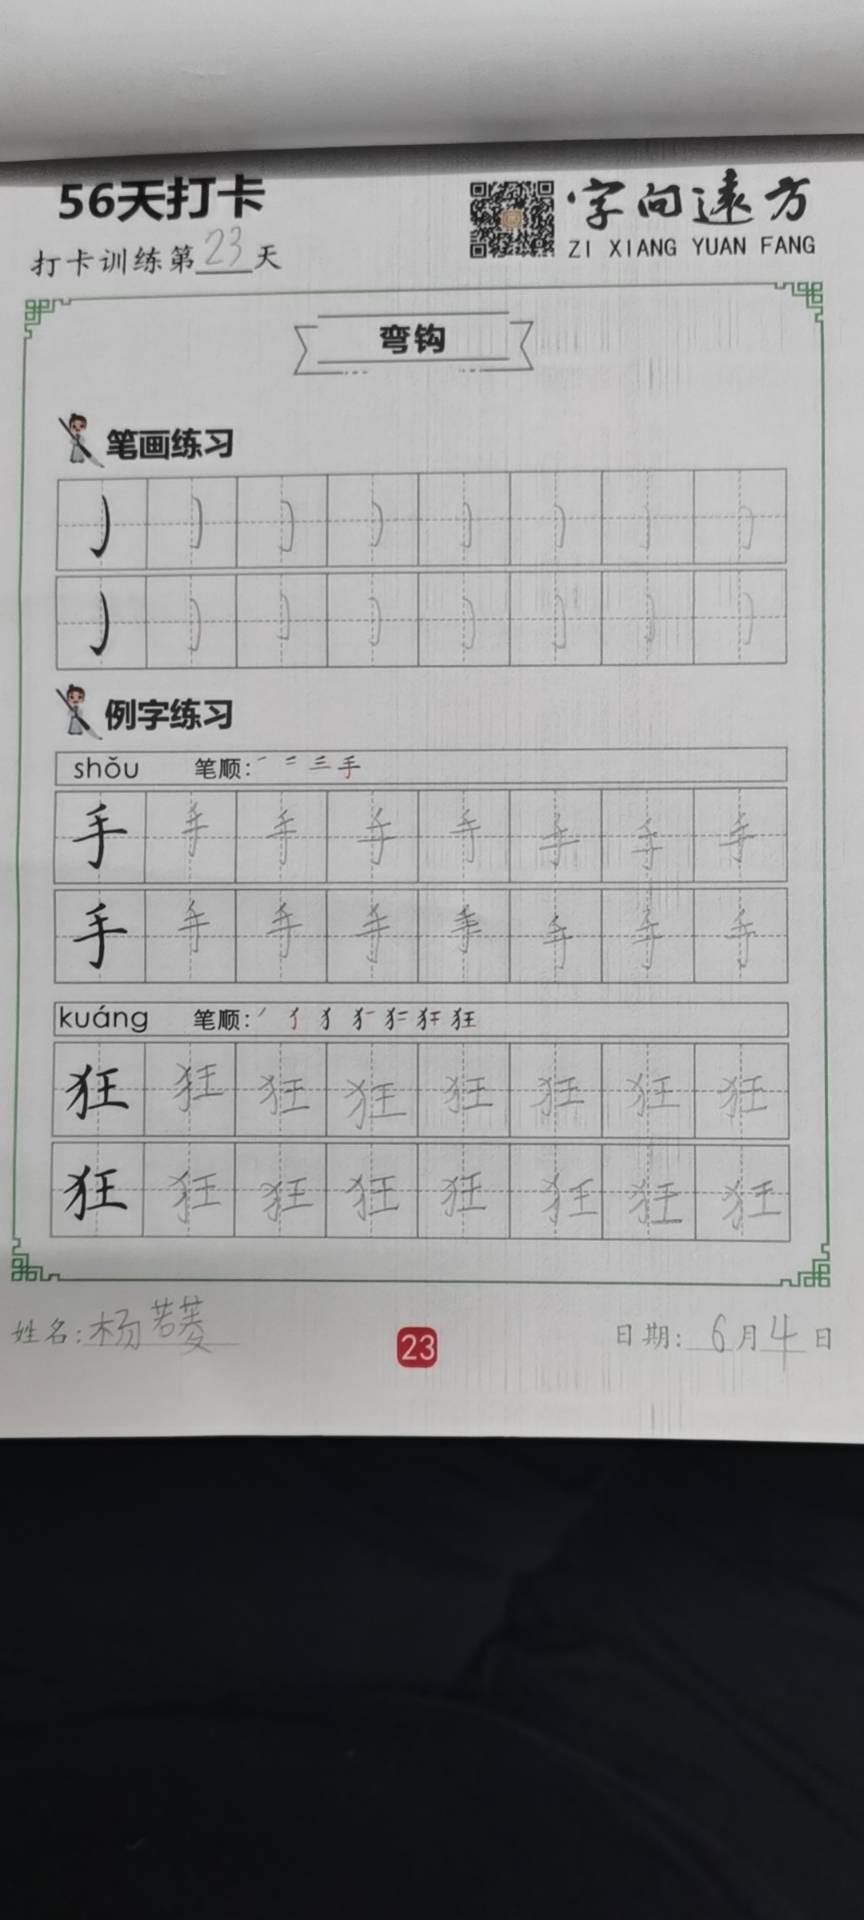 56天打卡
字向远方
ZI XIANG YUAN FANG
打卡训练第23天
弯钩
笔画练习
㇁ ㇁ ㇁ ㇁ ㇁ ㇁ ㇁ ㇁
㇁ ㇁ ㇁ ㇁ ㇁ ㇁ ㇁ ㇁
例字练习
shǒu 笔顺: 一 二 三 手
手 手 手 手 手 手 手 手
手 手 手 手 手 手 手 手
kuáng 笔顺:
狂 狂 狂 狂 狂 狂 狂 狂
狂 狂 狂 狂 狂 狂 狂 狂
姓名:杨
23
日期:6月4日